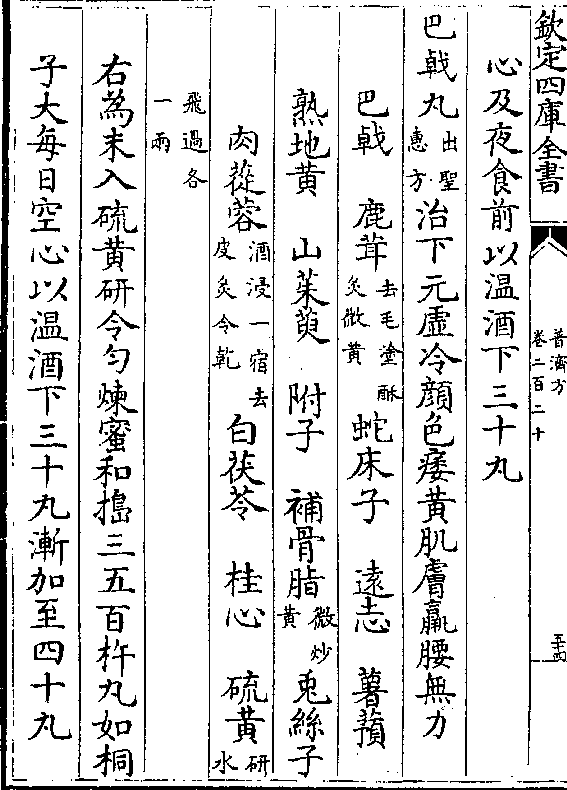 欽定四庫全書
普濟方
卷二百二十
五十四
心及夜食前以温酒下三十丸
巴戟丸出聖惠方治下元虛冷顔色痿黄肌膚羸腰無力
巴戟 鹿茸去毛塗酥炙微黄 蛇床子 遠志 薯蕷
熟地黄 山茱萸 附子 補骨脂微炒黄 兎絲子
肉蓯蓉酒浸一宿去皮炙令乾 白茯苓 桂心 硫黄研水
飛過各一兩
右為末入硫黄研令匀煉蜜和搗三五百杵丸如桐
子大每日空心以温酒下三十丸漸加至四十丸